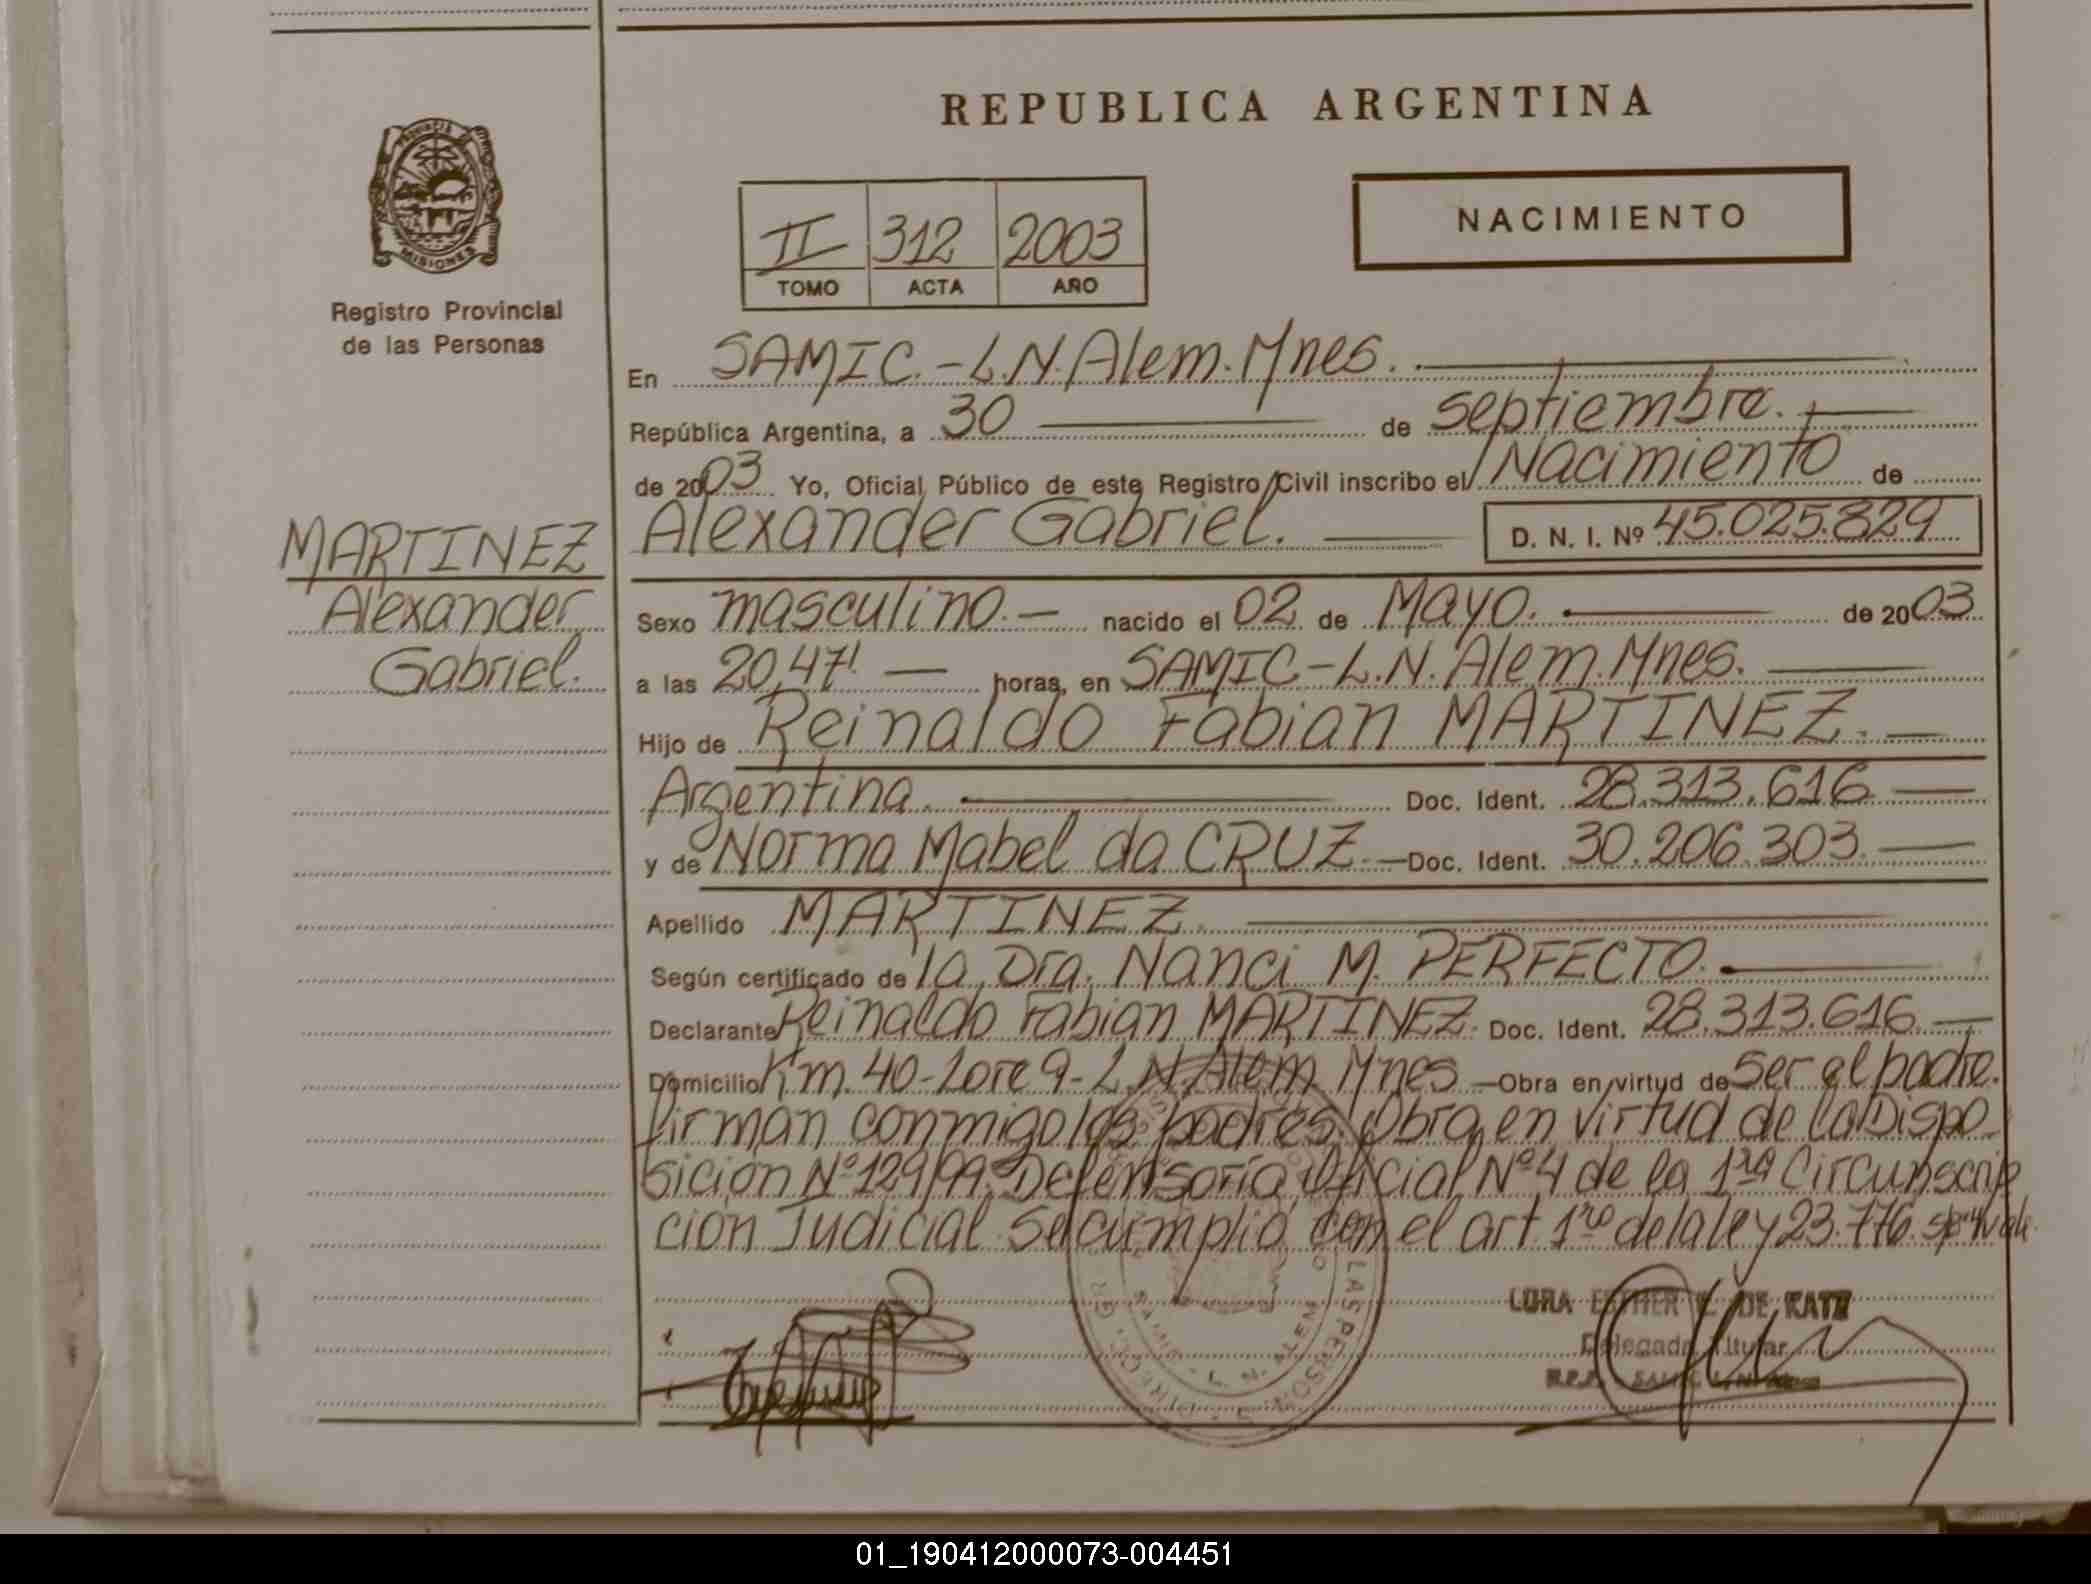 REPUBLICA ARGENTINA
NACIMIENTO
II 312 2003
TOMO ACTA AÑO
PROVINCIA DE MISIONES
Registro Provincial
de las Personas
MARTINEZ
Alexander
Gabriel.
En SAMIC.-L.N.Alem.Mnes.
República Argentina, a 30 de septiembre.
de 2003 Yo, Oficial Público de este Registro Civil inscribo el Nacimiento de
Alexander Gabriel. D. N. I. Nº 45.025.829
Sexo masculino.- nacido el 02 de Mayo. de 2003
a las 20,47' horas, en SAMIC-L.N.Alem.Mnes.
Hijo de Reinaldo Fabian MARTINEZ.
Argentina. Doc. Ident. 28.313.616
y de Norma Mabel da CRUZ.- Doc. Ident. 30.206.303.
Apellido MARTINEZ.
Según certificado de la Dra. Nanci M. PERFECTO.
Declarante Reinaldo Fabian MARTINEZ. Doc. Ident. 28.313.616
Domicilio Km.40-Lote 9-L.N.Alem Mnes -Obra en virtud de ser el padre.
firman conmigo los padres. Obra en virtud de la Dispo
sición Nº 129/99. Defensoría Oficial Nº 4 de la 1ra Circunscrip
ción Judicial. Se cumplió con el art 1ro de la ley 23.776. vale.
LORA ESTHER DE KATZ
Delegada Titular
R.P.P. SAMIC L.N. Alem
LAS PERSONAS - DIRECC. GR
SAMIC - L. N. ALEM
01_190412000073-004451